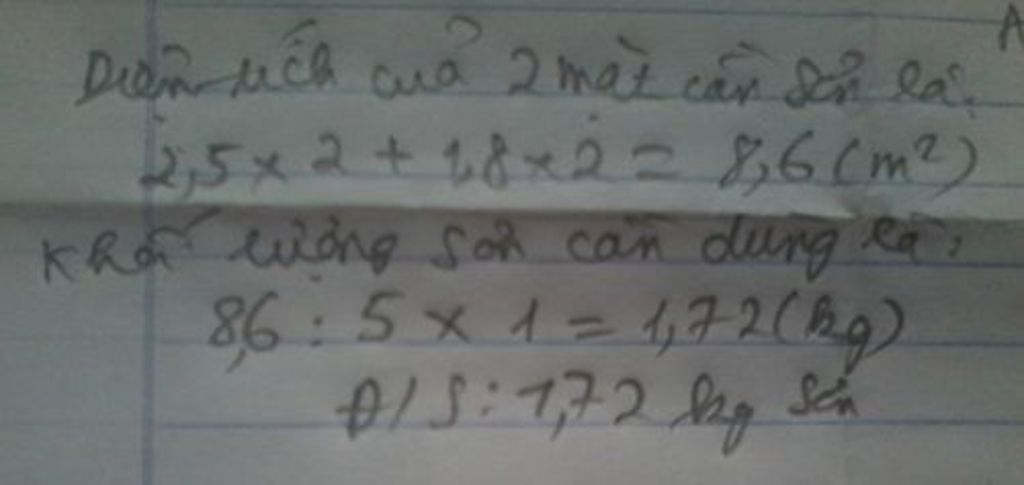 A
Diện tích cuả 2 mặt cần sơn là:
2,5 × 2 + 1,8 × 2 = 8,6 (m²)
Khối lượng sơn cần dùng là:
8,6 : 5 × 1 = 1,72 (kg)
Đ/S: 1,72 kg sơn